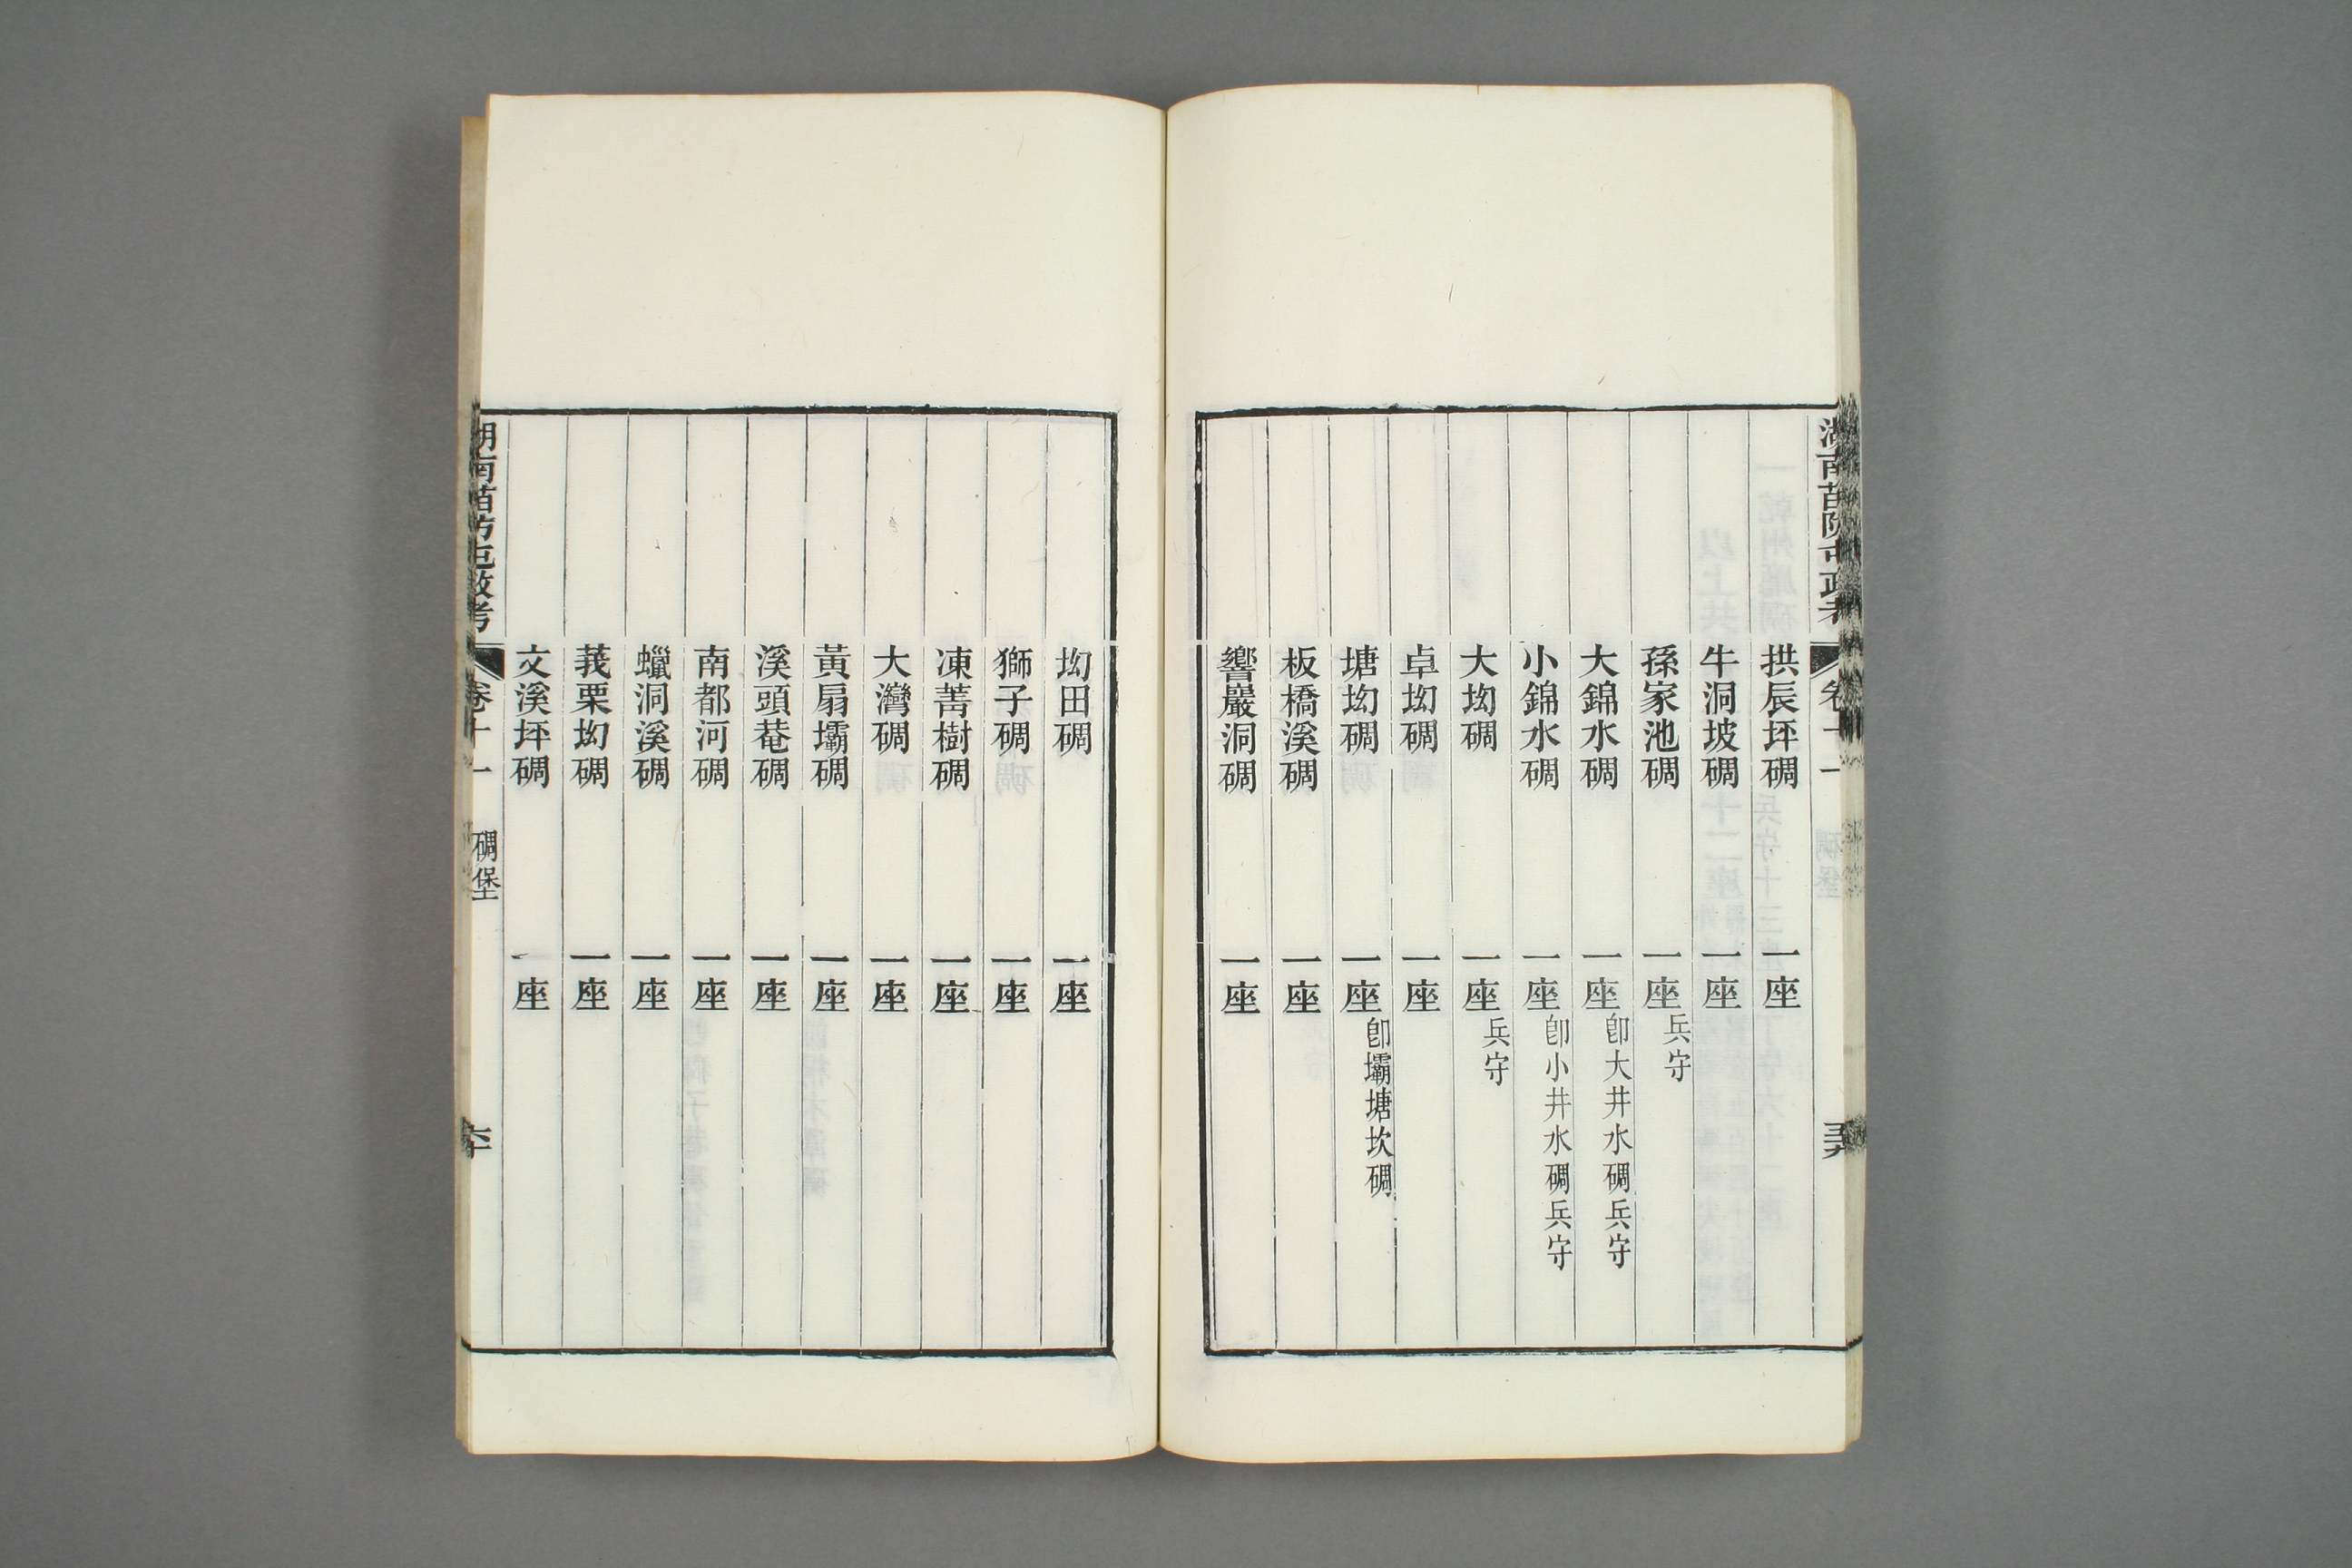 湖南苗防屯政考 卷十一
拱辰坪碉 一座
牛洞坡碉 一座
孫家池碉 一座 兵守
大錦水碉 一座 卽大井水碉兵守
小錦水碉 一座 卽小井水碉兵守
大㘭碉 一座 兵守
卓㘭碉 一座
塘㘭碉 一座 卽壩塘坎碉
板橋溪碉 一座
響巖洞碉 一座
㘭田碉 一座
獅子碉 一座
凍菁樹碉 一座
大灣碉 一座
黃扇壩碉 一座
溪頭菴碉 一座
南都河碉 一座
蠟洞溪碉 一座
莪栗㘭碉 一座
文溪坪碉 一座
湖南苗防屯政考 卷十一 碉堡 六十